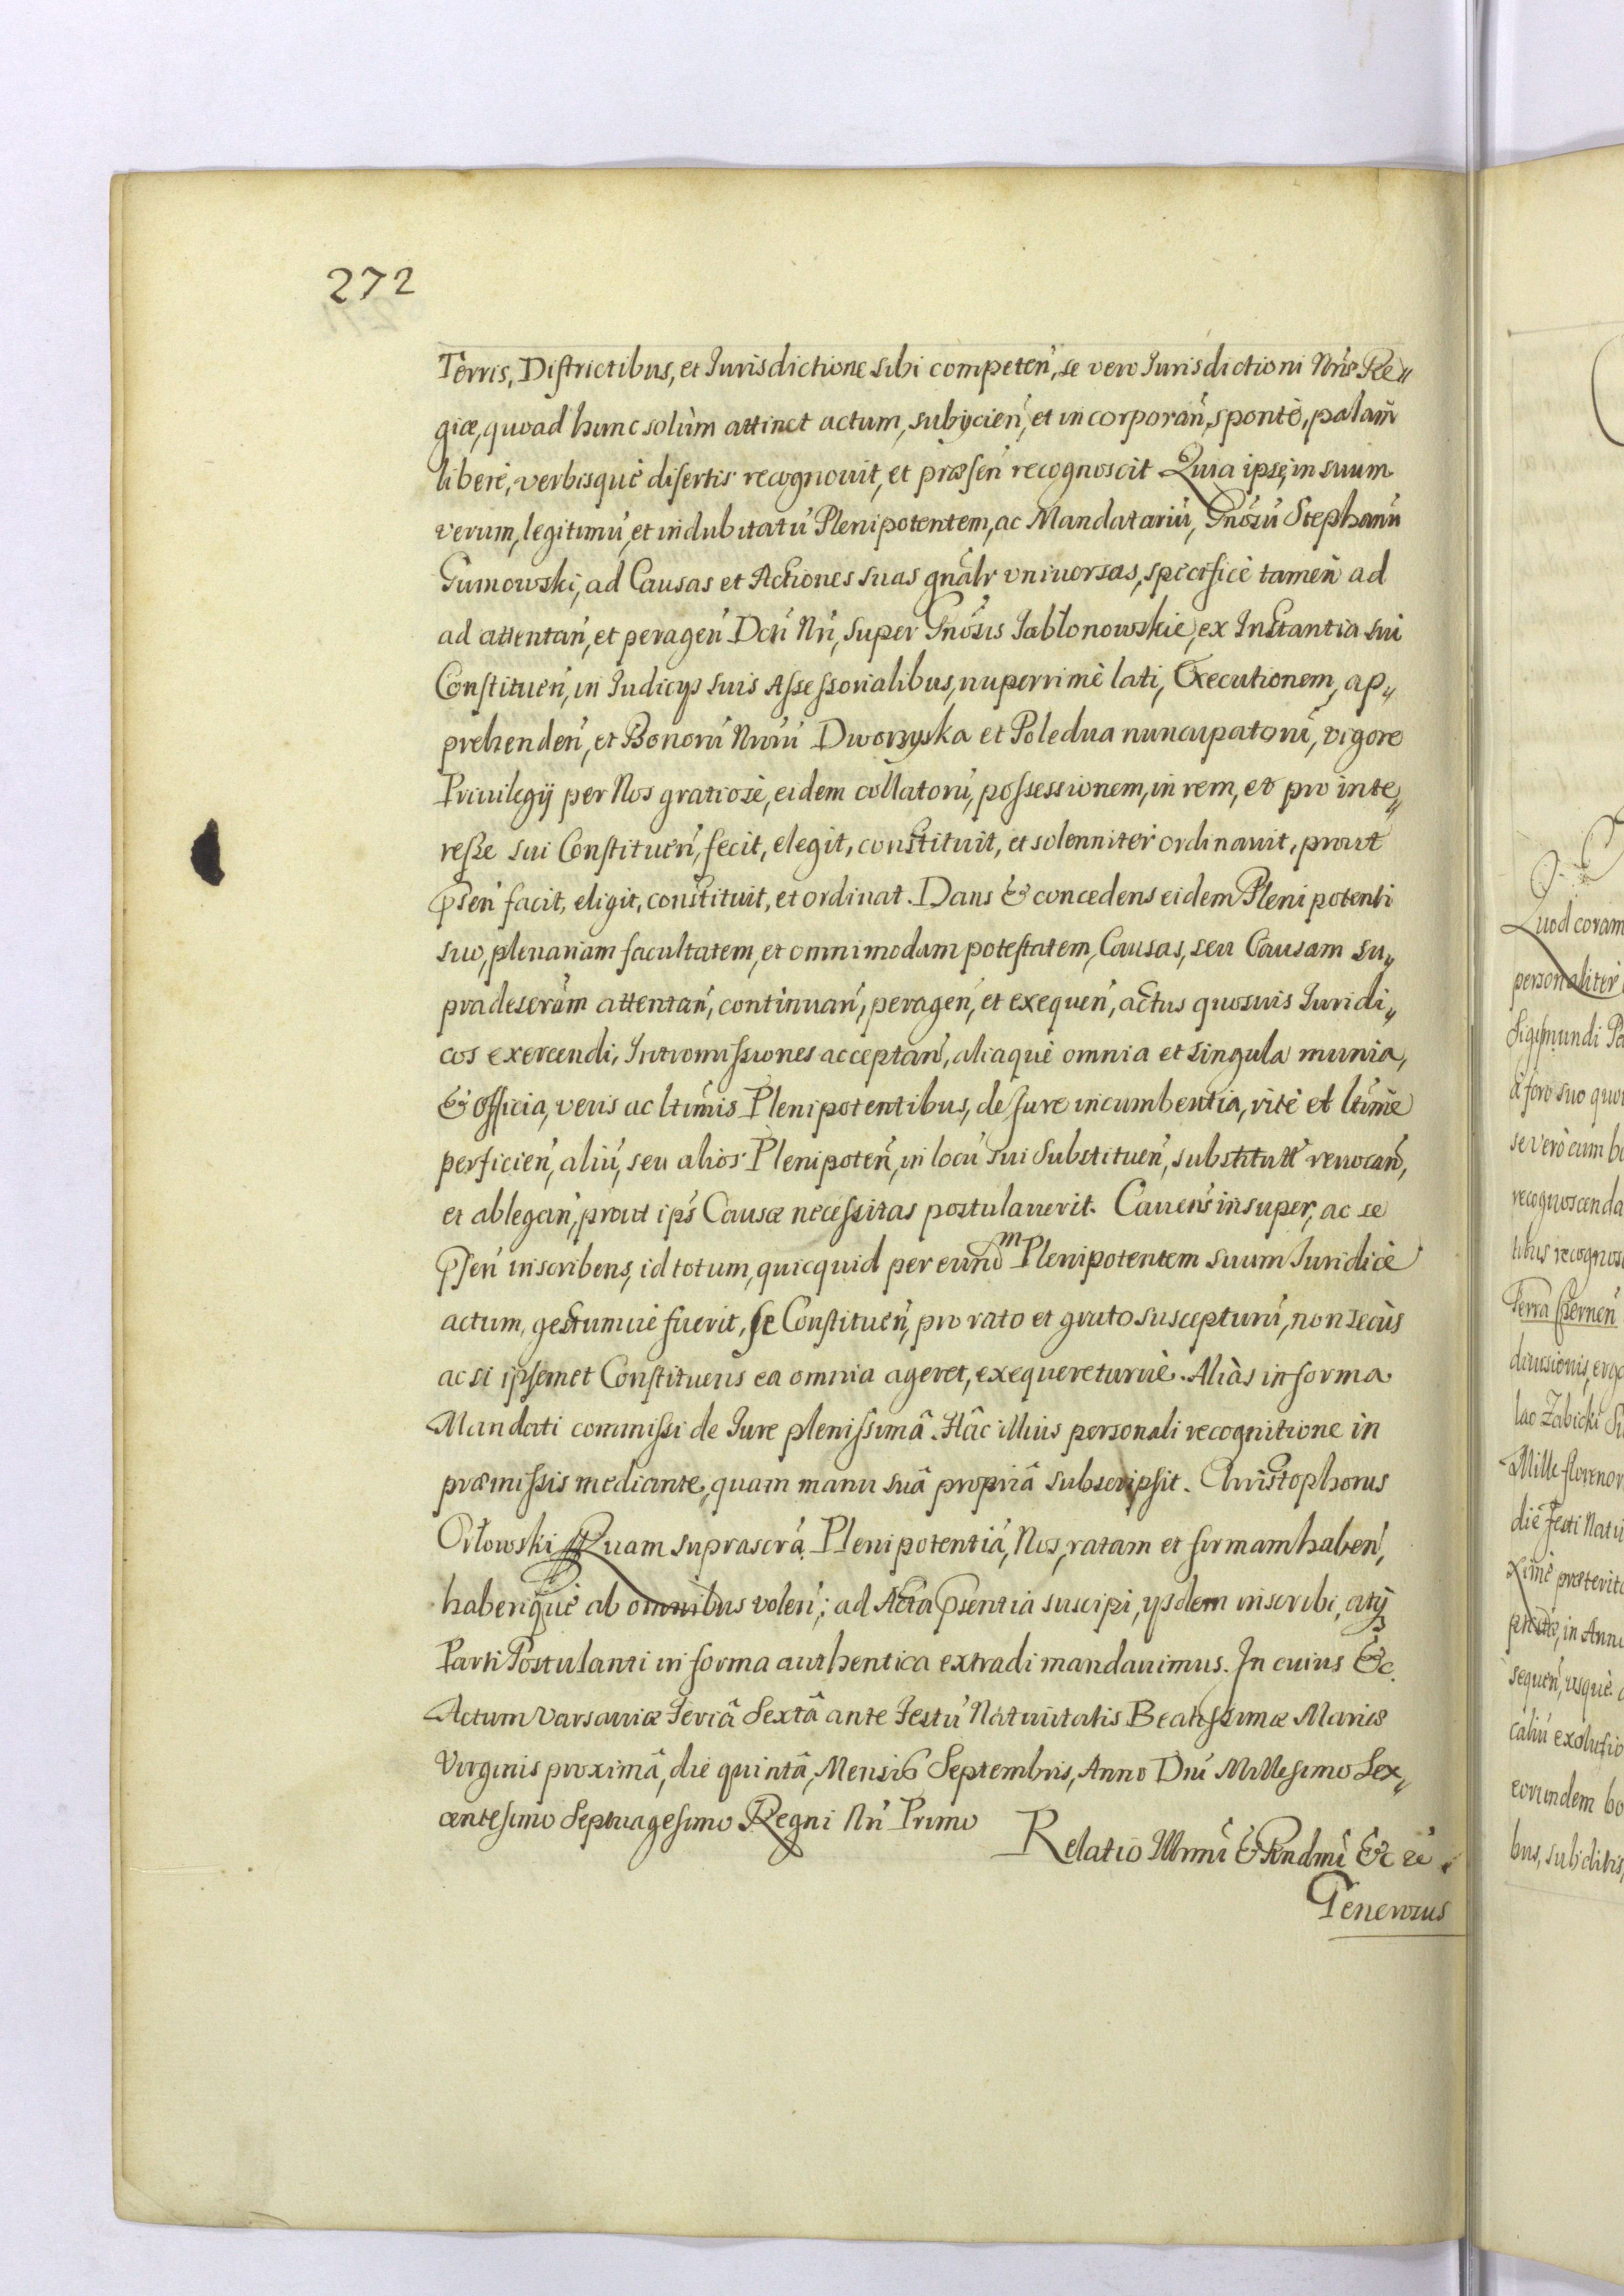 272
Terris, Districtibus, et Jurisdictione sibi competeń, se vero Jurisdictioni Nrae Re„
giæ, quoad hunc solùm attinct actum, subycień, et incorporań, spontè, palam̃
liberè, verbisquè disertis recognouit, et præseń recognoscit Quia ipse, in suum
verum, legitimú, et indubitatú Plenipotentem, ac Mandatariú, Gnosú Stephanú
Gumowski, ad Causas et Actiones suas gnãlr vniuersas, specificè tamen ad
ad attentań, et perageń Dcti Nri, super Gnosis Jabłonowskie, ex Instantia sui
Constitueń, in Judicys suis Assessorialibus, nuperrimè lati, Executionem, ap„
prehendeń, et Bonorú Nrorú Dworzyska et Poledna nuncupatorú, vigore
Priuilegÿ per Nos gratiosè, eidem collatorú, possessionem, in rem, et pro inte„
resse sui Constitueń, fecit, elegit, constituit, et solenniter ordinauit, prout
Pseń facit, eligit, constituit, et ordinat. Dans & concedens eidem Plenipotenti
suo, plenariam facultatem, et omnimodam potestatem, Causas, seu Causam su„
pradescram attentań, continuań, perageń, et exequeń, actus quosuis Juridi„
cos exercendi, Intromissiones acceptań, aliaquè omnia et singula munia,
& officia, veris ac ltimis Plenipotentibus, de Jure incumbentia, ritè et ltimè
perficień, aliú, seu alios Plenipoteń, in locú sui Substitueń, substitutú reuocań,
et ablegań, prout ips Causæ necessitas postulauerit. Cauens insuper, ac se
Pseń inscribens, id totum, quicquid per eund m Plenipotentem suum Juridicè
actum, gestumuè fuerit, se Constitueń, pro rato et grato suscepturú, non secùs
ac si ipsemet Constituens ea omnia ageret, exequereturuè. Aliàs in forma
Mandati commissi de Jure plenissimâ. Hâc illius personali recognitione in
præmissis mediante, quam manu suâ propriâ subscripsit. Christophorus
Orłowski Quam suprascrá Plenipotentiá, Nos, ratam et firmam habeń,
haberiquè ab omnibus voleń; ad Acta Psentia suscipi, ysdem inscribi, atq
Parti Postulanti in forma authentica extradi mandauimus. In cuius &c.
Actum Varsauiæ Feriâ Sextâ ante Festú Natiuitatis Beatissimæ Mariæ
Virginis proximâ, die quintâ, Mensis Septembris, Anno Dni Millesimo Sex„
centesimo Septuagesimo Regni Nri Primo
Relatio Illrmi & Rndmi &c
Generosus
Quod coram
personaliter
Sigismundi
à foro suo quo
se verò cum bo
recognoscenda
Terra Czernen
diuisionis, erge
Mille florenor
die Festi Natiu
ximè præterito
in Annu
sequeń, usquè
eorundem bo
bus, subditis,